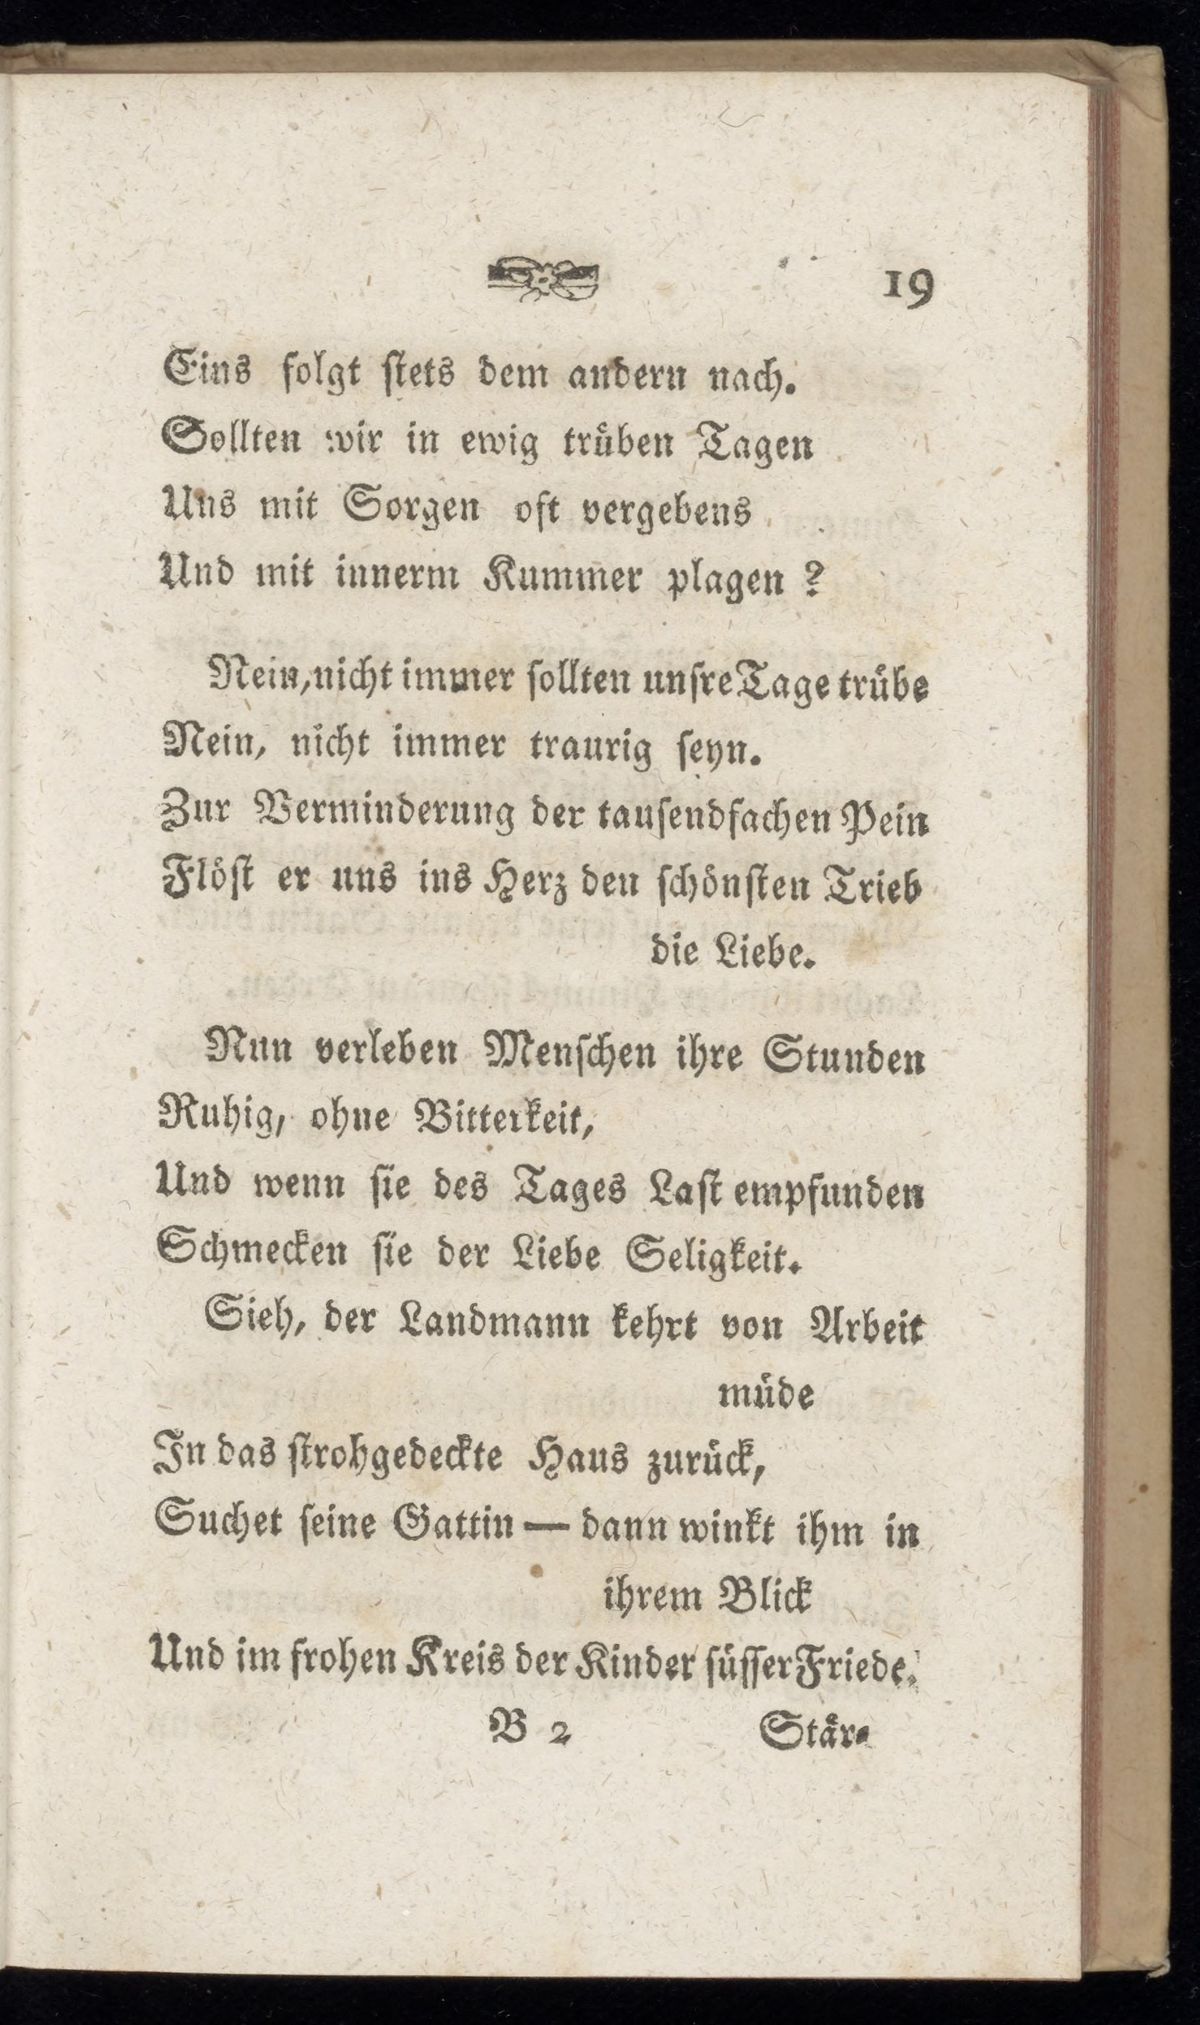 19
Eins folgt stets dem andern nach.
Sollten wir in ewig trüben Tagen
Uns mit Sorgen oft vergebens
Und mit innerm Kummer plagen ?
Nein, nicht immer sollten unsre Tage trübe
Nein, nicht immer traurig seyn.
Zur Verminderung der tausendfachen Pein
Flöst er uns ins Herz den schönsten Trieb
die Liebe.
Nun verleben Menschen ihre Stunden
Ruhig, ohne Bitterkeit,
Und wenn sie des Tages Last empfunden
Schmecken sie der Liebe Seligkeit.
Sieh, der Landmann kehrt von Arbeit
müde
In das strohgedeckte Haus zurück,
Suchet seine Gattin — dann winkt ihm in
ihrem Blick
Und im frohen Kreis der Kinder süsser Friede.
B 2 Stär-